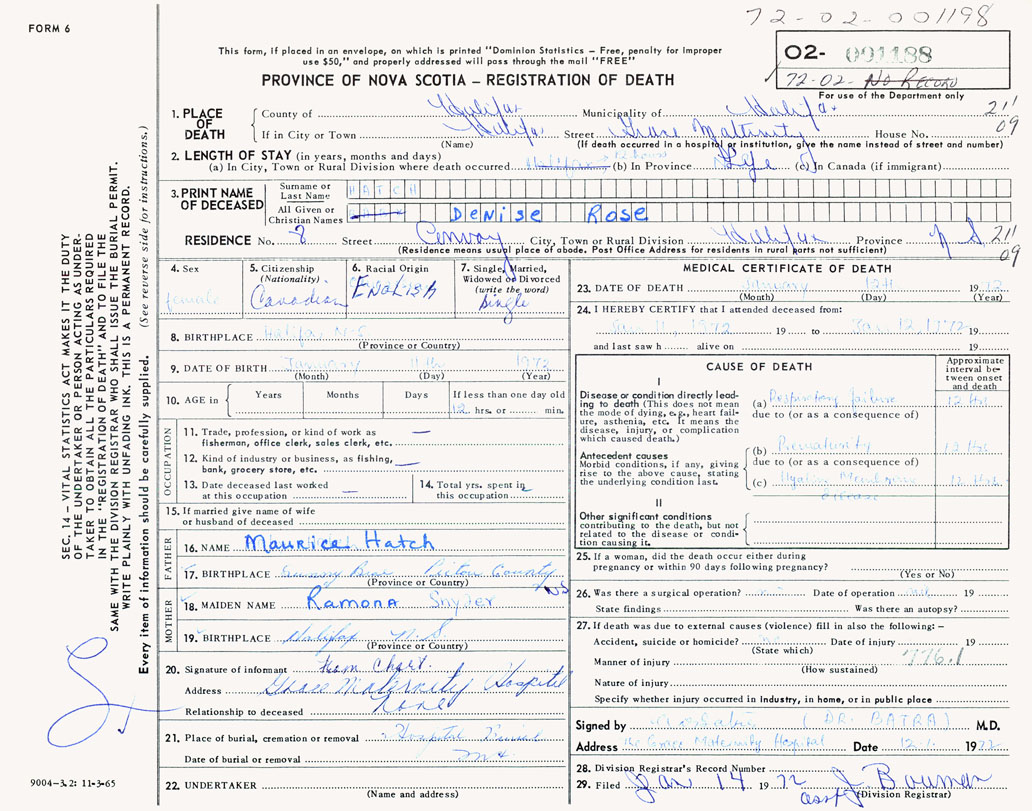 72-02-001198
FORM 6
This form, if placed in an envelope, on which is printed "Dominion Statistics – Free, penalty for improper
use $50," and properly addressed will pass through the mail "FREE"
PROVINCE OF NOVA SCOTIA – REGISTRATION OF DEATH
O2- 001188
72-02- No Record
For use of the Department only
211
09
1. PLACE OF DEATH
County of Halifax Municipality of Halifax
If in City or Town Halifax Street Grace Maternity House No.
(Name) (If death occurred in a hospital or institution, give the name instead of street and number)
2. LENGTH OF STAY (in years, months and days)
(a) In City, Town or Rural Division where death occurred Halifax 12 hours (b) In Province Life (c) In Canada (if immigrant)
3. PRINT NAME OF DECEASED
Surname or Last Name HATCH
All Given or Christian Names Denise Rose
RESIDENCE No. 8 Street Conway City, Town or Rural Division Halifax Province N S 211
09
(Residence means usual place of abode. Post Office Address for residents in rural parts not sufficient)
4. Sex
female
5. Citizenship (Nationality).
Canadian
6. Racial Origin
English
7. Single, Married, Widowed or Divorced (write the word)
Single
8. BIRTHPLACE Halifax, N.S.
(Province or Country)
9. DATE OF BIRTH January 11th 1972
(Month) (Day) (Year)
10. AGE in Years Months Days If less than one day old
12 hrs. or min.
OCCUPATION
11. Trade, profession, or kind of work as
fisherman, office clerk, sales clerk, etc. —
12. Kind of industry or business, as fishing,
bank, grocery store, etc. —
13. Date deceased last worked
at this occupation —
14. Total yrs. spent in
this occupation
15. If married give name of wife
or husband of deceased
FATHER
16. NAME Maurice Hatch
17. BIRTHPLACE Sunny Brae Pictou County NS
(Province or Country)
MOTHER
18. MAIDEN NAME Ramona Snyder
19. BIRTHPLACE Halifax N.S
(Province or Country)
20. Signature of informant from Chart
Address Grace Maternity Hospital
Relationship to deceased None
21. Place of burial, cremation or removal Hospital Burial
Date of burial or removal
22. UNDERTAKER
(Name and address)
MEDICAL CERTIFICATE OF DEATH
23. DATE OF DEATH January 12th 1972
(Month) (Day) (Year)
24. I HEREBY CERTIFY that I attended deceased from:
Jan 11, 1972 19 to Jan 12, 1972 19
and last saw h alive on 19
CAUSE OF DEATH
Approximate interval between onset and death
I
Disease or condition directly leading to death (This does not mean the mode of dying, e.g., heart failure, asthenia, etc. It means the disease, injury, or complication which caused death.)
(a) Respiratory failure 12 Hrs
due to (or as a consequence of)
Antecedent causes
Morbid conditions, if any, giving rise to the above cause, stating the underlying condition last.
(b) Prematurity 12 Hrs
due to (or as a consequence of)
(c) Hyaline Membrane disease 12 Hrs
II
Other significant conditions
contributing to the death, but not related to the disease or condition causing it.
25. If a woman, did the death occur either during
pregnancy or within 90 days following pregnancy?
(Yes or No)
26. Was there a surgical operation? Date of operation 19
State findings Was there an autopsy?
27. If death was due to external causes (violence) fill in also the following: –
Accident, suicide or homicide? no Date of injury 19
(State which)
776.1
Manner of injury
(How sustained)
Nature of injury
Specify whether injury occurred in Industry, in home, or in public place
Signed by (DR. BATRA) M.D.
Address The Grace Maternity Hospital Date 12.1. 1972
28. Division Registrar's Record Number
29. Filed Jan 14 1972 J. Bauman
asst (Division Registrar)
SEC. 14 – VITAL STATISTICS ACT MAKES IT THE DUTY
OF THE UNDERTAKER OR PERSON ACTING AS UNDER-
TAKER TO OBTAIN ALL THE PARTICULARS REQUIRED
IN THE "REGISTRATION OF DEATH" AND TO FILE THE
SAME WITH THE DIVISION REGISTRAR WHO SHALL ISSUE THE BURIAL PERMIT.
WRITE PLAINLY WITH UNFADING INK. THIS IS A PERMANENT RECORD.
Every item of information should be carefully supplied. (See reverse side for instructions.)
9004–3.2: 11-3-65